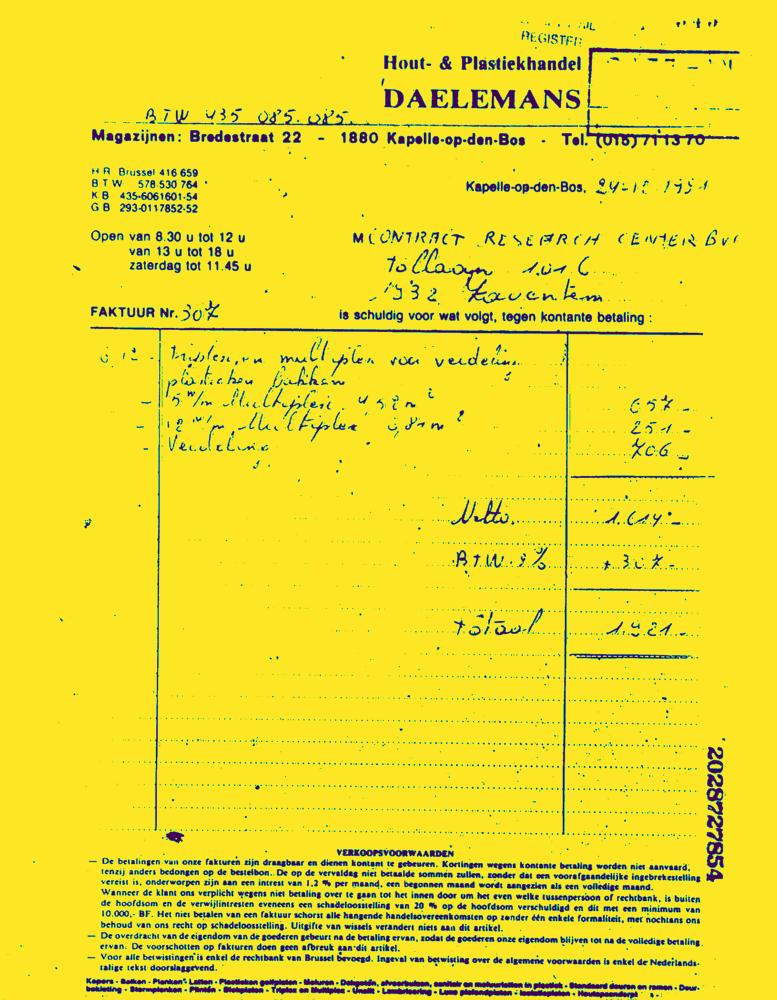 REGISTER
Hout- & Plastiekhandel
DAELEMANS
BTW 435 085.085.
Magazijnen: Bredestraat 22 - 1880 Kapelle-op-den-Bos - Tel. (015) 71 13 70
H R Brussel 416 659
B T W 578.530 764
K B 435-6061601-54
G B 293-0117852-52
Kapelle-op-den-Bos,
Open van 8.30 u tot 12 u
van 13 u tot 18 u
zaterdag tot 11.45 u
CONTRACT RESEARCH CENTER
Tollaan 101 C
1932 Zaventem
FAKTUUR Nr. 307
is schuldig voor wat volgt, tegen kontante betaling :
triplex en multiplex voor verdeling
plastieken bakken
5 m/m Multiplex
657 -
12 m/m Multiplex
251 -
Verdeling
706 -
Netto. 1.614 -
BTW. + 307 -
totaal 1.921 -
2028727854
VERKOOPSVOORWAARDEN
— De betalingen van onze fakturen zijn draagbaar en dienen kontant te gebeuren. Kortingen wegens kontante betaling worden niet aanvaard,
tenzij anders bedongen op de bestelbon. De op de vervaldag niet betaalde sommen zullen, zonder dat een voorafgaandelijke ingebrekestelling
vereist is, onderworpen zijn aan een intrest van 1,2 % per maand, een begonnen maand wordt aangezien als een volledige maand.
Wanneer de klant ons verplicht wegens niet betaling over te gaan tot het innen door om het even welke tussenpersoon of rechtbank, is buiten
de hoofdsom en de verwijlintresten eveneens een schadeloosstelling van 20 % op de hoofdsom verschuldigd en dit met een minimum van
10.000,- BF. Het niet betalen van een faktuur schorst alle hangende handelsovereenkomsten op zonder één enkele formaliteit, met nochtans ons
behoud van ons recht op schadeloosstelling. Uitgifte van wissels verandert niets aan dit artikel.
— De overdracht van de eigendom van de goederen gebeurt na de betaling ervan, zodat de goederen onze eigendom blijven tot na de volledige betaling
ervan. De voorschotten op fakturen doen geen afbreuk aan dit artikel.
— Voor alle betwistingen is enkel de rechtbank van Brussel bevoegd. Ingeval van betwisting over de algemene voorwaarden is enkel de Nederlands-
talige tekst doorslaggevend.
Kepers - Balken - Planken - Latten - Plastieken golfplaten - Moluren - Dakgoten, afvoerbuizen, sanitair en motorlatten in plastiek - Standaard deuren en ramen - Deur-
bekleding - Sierplanken - Plinten - Blokplaten - Triplex en Multiplex - Unalit - Lambrisering - Luxe plafondplaten - Isolatieplaten - Houtspaanderpl